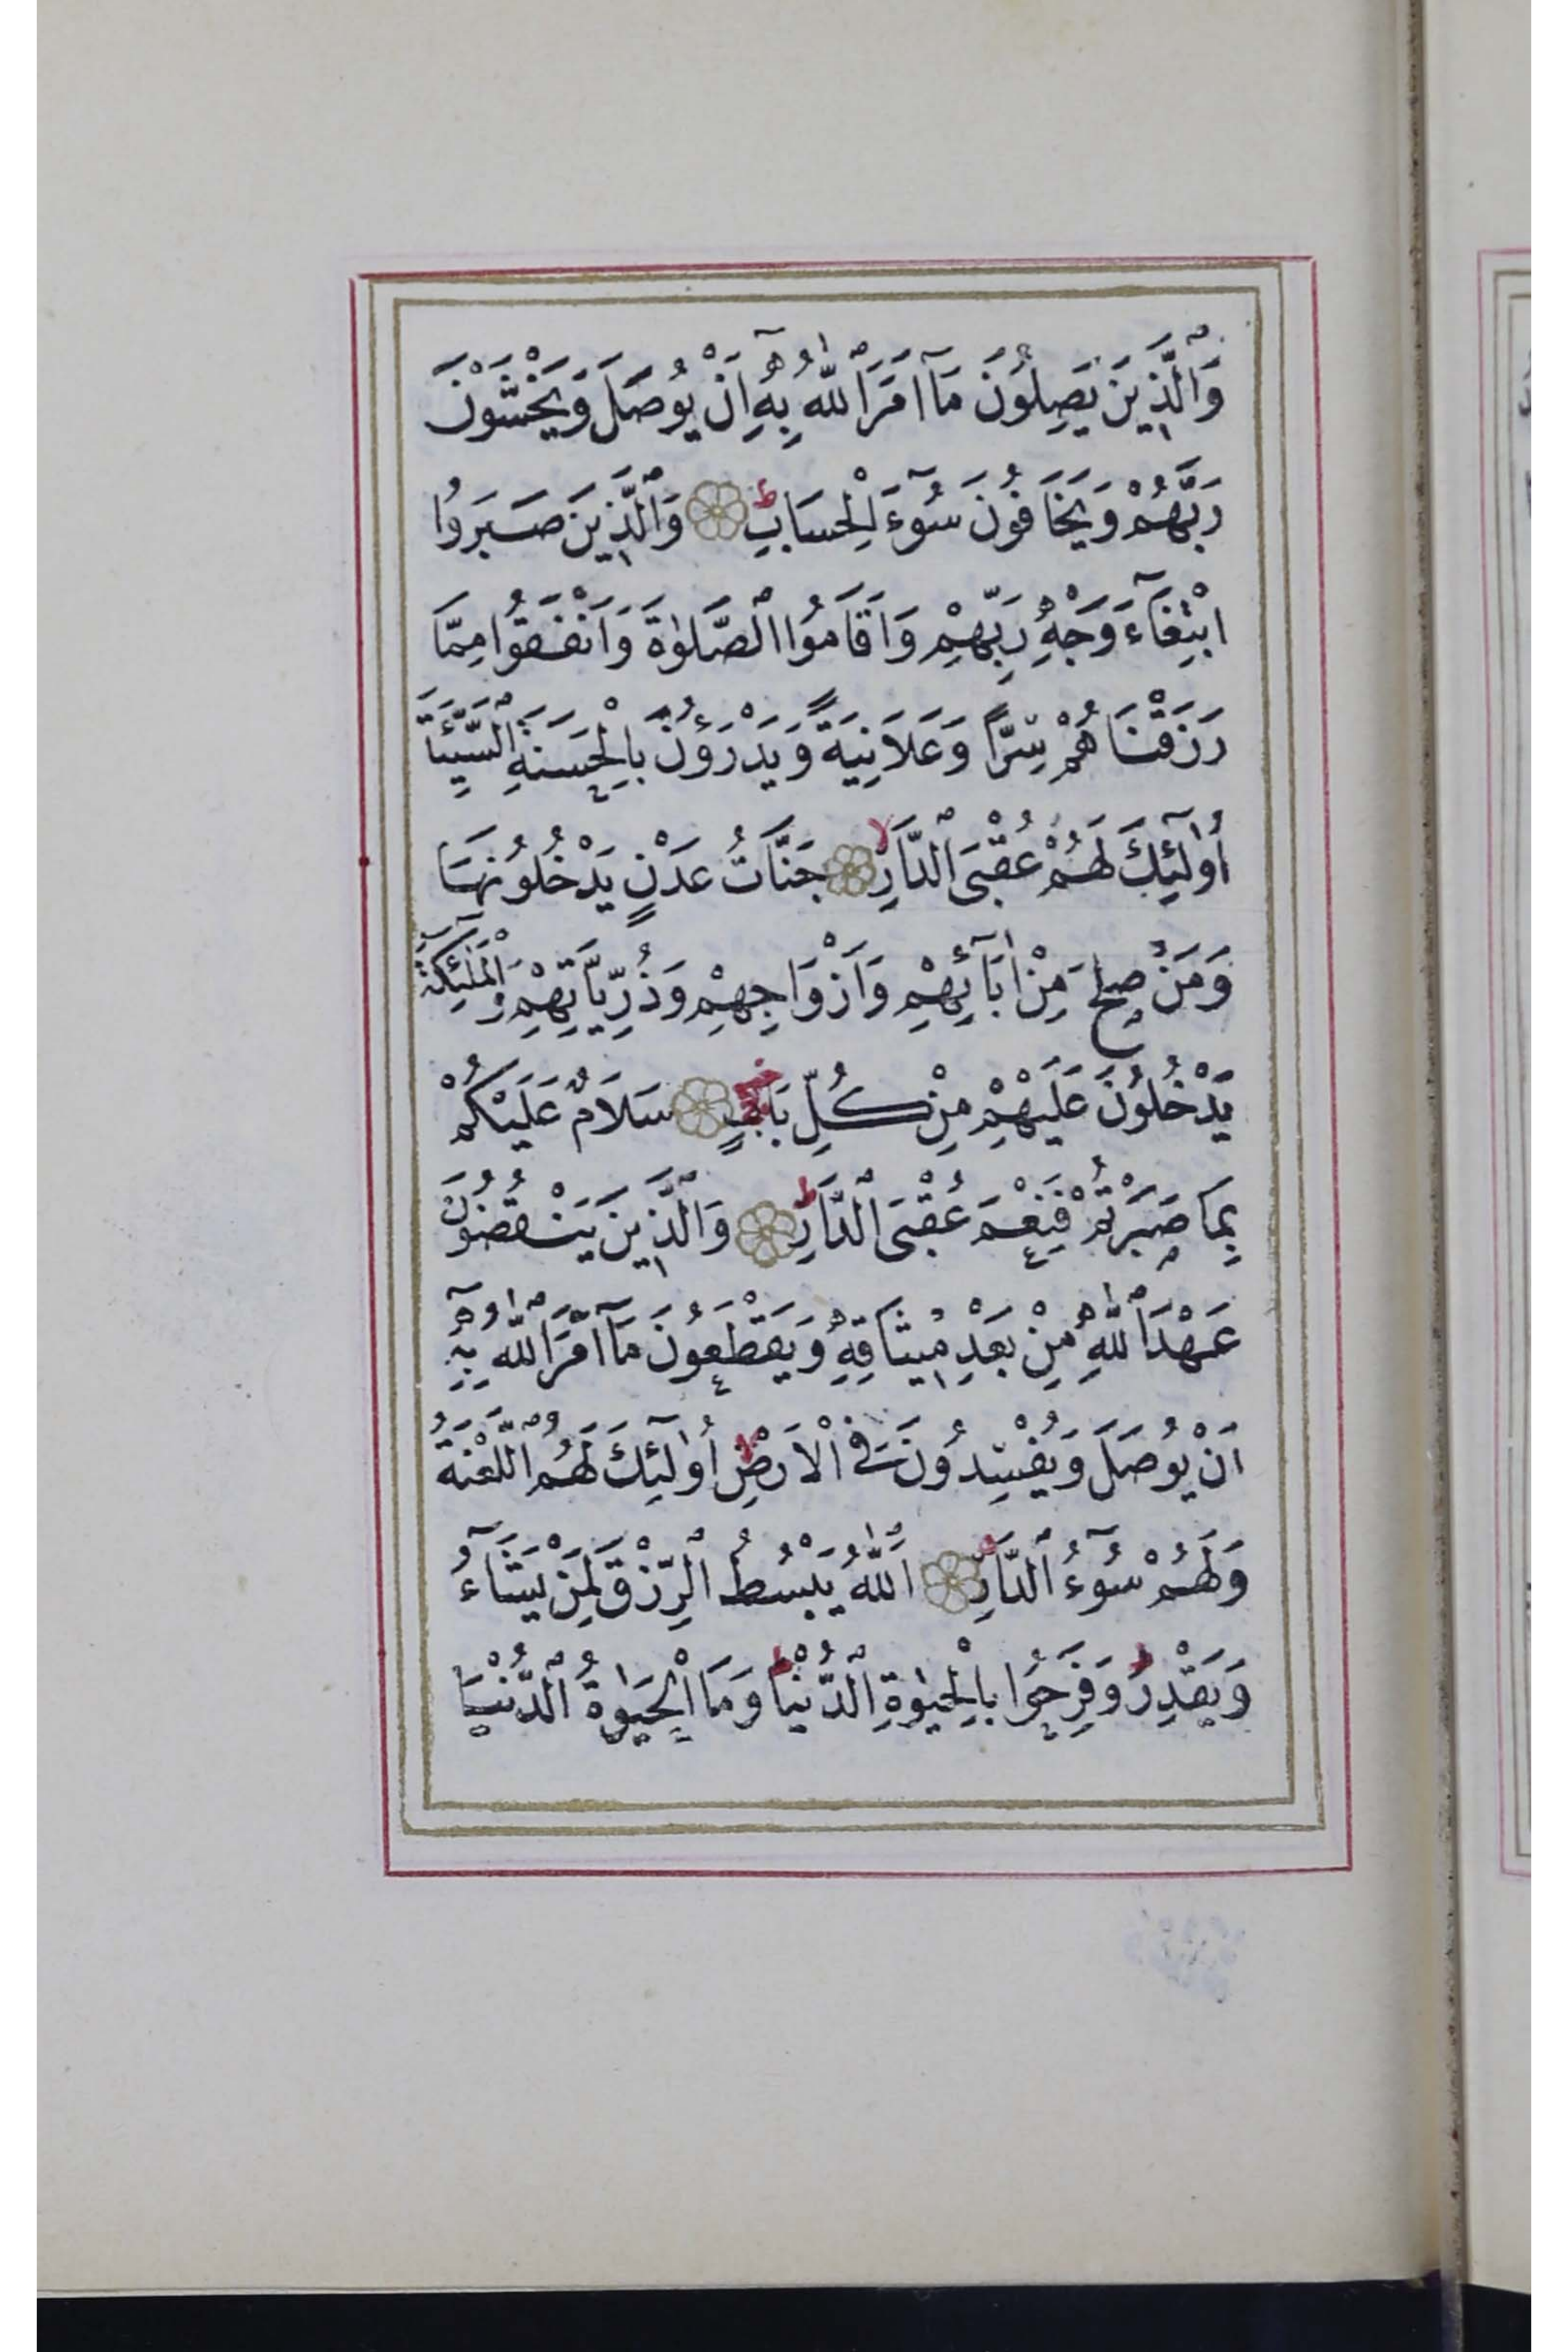 وَالَّذِينَ يَصِلُونَ مَآ اَمَرَ اللّٰهُ بِهِٓ اَنْ يُوصَلَ وَيَخْشَوْنَ
رَبَّهُمْ وَيَخَافُونَ سُوٓءَ الْحِسَابِ ط وَالَّذِينَ صَبَرُوا
ابْتِغَآءَ وَجْهِ رَبِّهِمْ وَاَقَامُوا الصَّلٰوةَ وَاَنْفَقُوا مِمَّا
رَزَقْنَاهُمْ سِرًّا وَعَلَانِيَةً وَيَدْرَؤُنَ بِالْحَسَنَةِ السَّيِّئَةَ
اُولٰٓئِكَ لَهُمْ عُقْبَى الدَّارِ لا جَنَّاتُ عَدْنٍ يَدْخُلُونَهَا
وَمَنْ صَلَحَ مِنْ اٰبَآئِهِمْ وَاَزْوَاجِهِمْ وَذُرِّيَّاتِهِمْ وَالْمَلٰٓئِكَةُ
يَدْخُلُونَ عَلَيْهِمْ مِنْ كُلِّ بَابٍ سَلَامٌ عَلَيْكُمْ
بِمَا صَبَرْتُمْ فَنِعْمَ عُقْبَى الدَّارِ ط وَالَّذِينَ يَنْقُضُونَ
عَهْدَ اللّٰهِ مِنْ بَعْدِ مِيثَاقِهِ وَيَقْطَعُونَ مَآ اَمَرَ اللّٰهُ بِهِٓ
اَنْ يُوصَلَ وَيُفْسِدُونَ فِي الْاَرْضِ اُولٰٓئِكَ لَهُمُ اللَّعْنَةُ
وَلَهُمْ سُوٓءُ الدَّارِ اَللّٰهُ يَبْسُطُ الرِّزْقَ لِمَنْ يَشَآءُ
وَيَقْدِرُ ط وَفَرِحُوا بِالْحَيٰوةِ الدُّنْيَا ط وَمَا الْحَيٰوةُ الدُّنْيَا